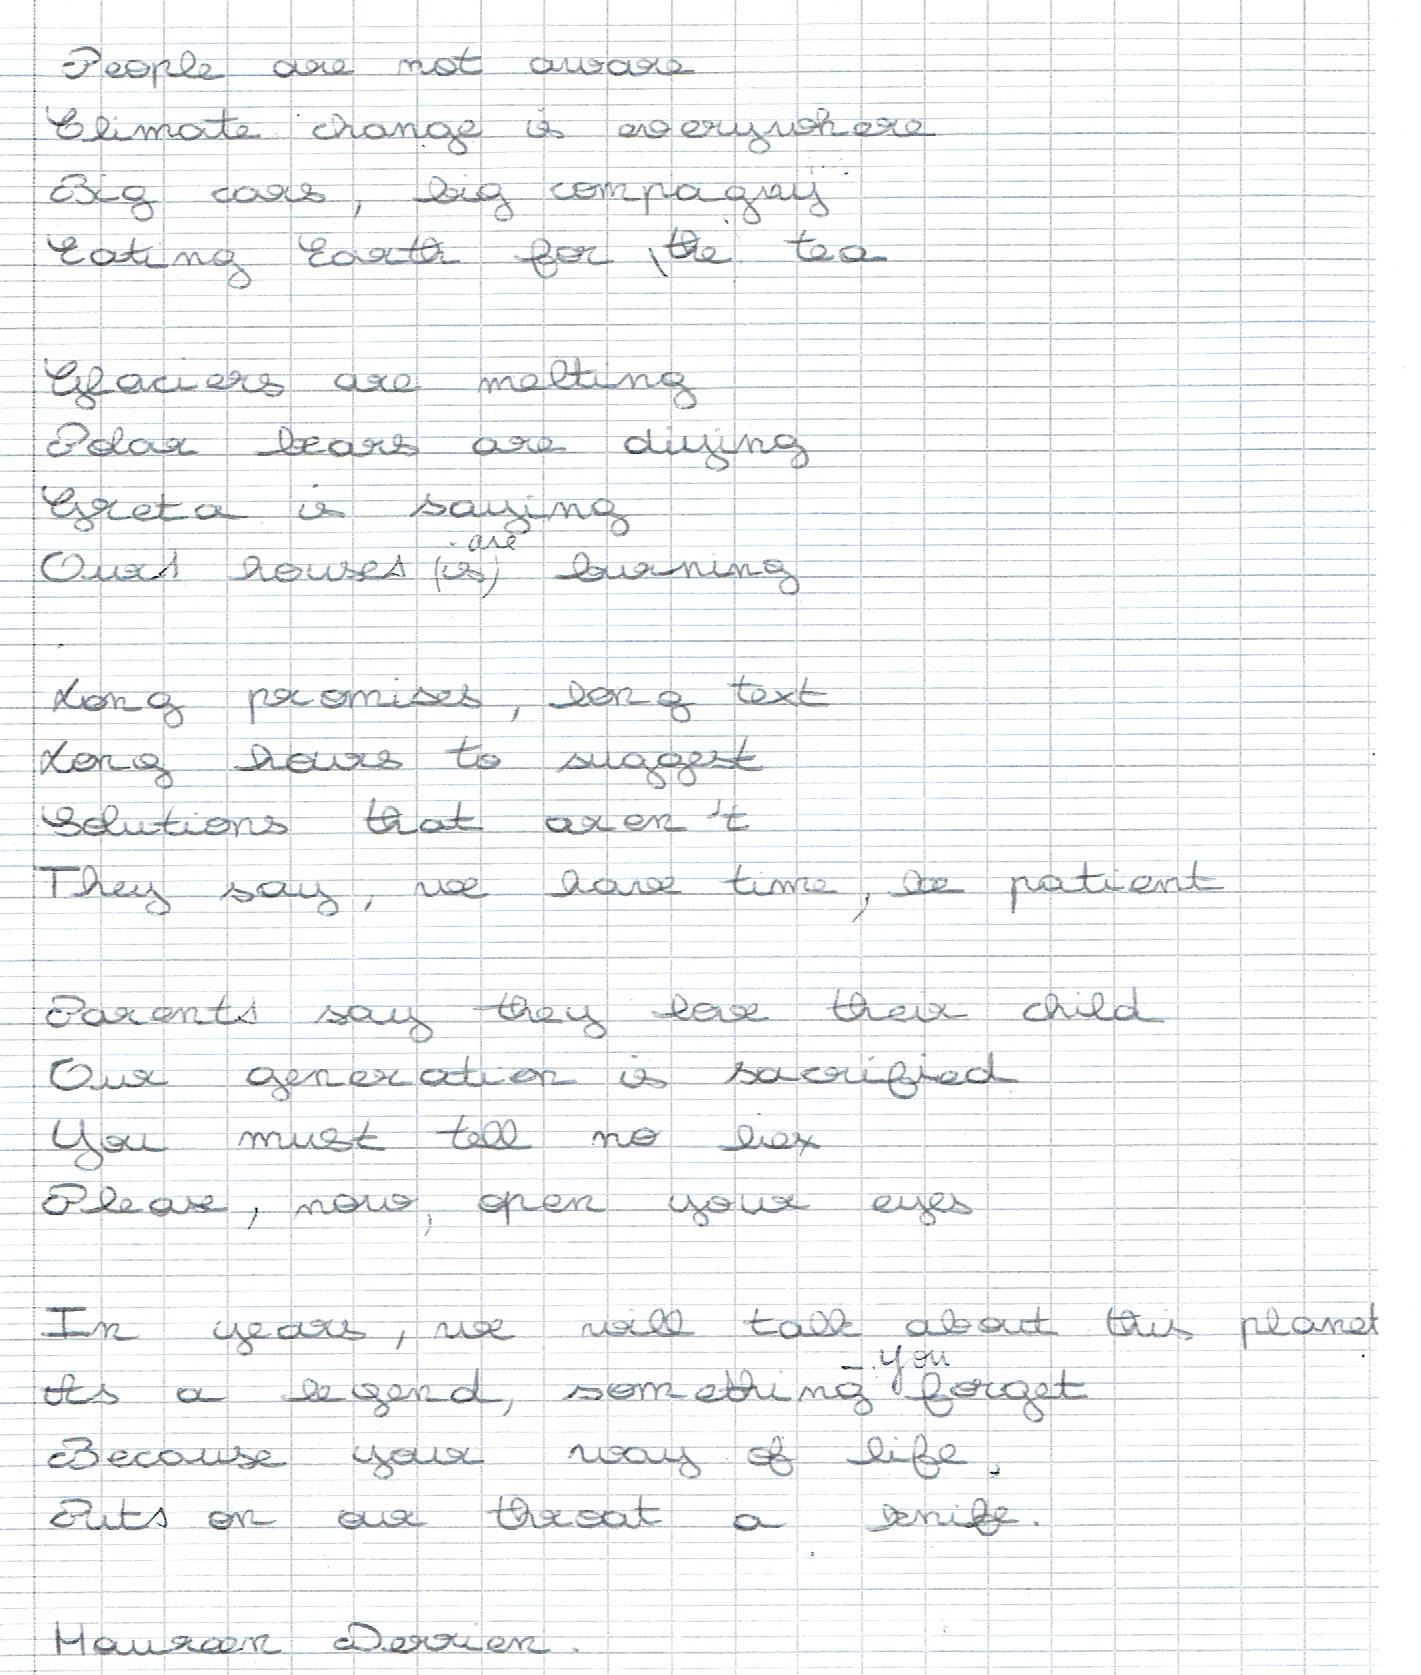 People are not aware
Climate change is everywhere
Big cars, big compagny
Eating Earth for the tea
Glaciers are melting
Polar bears are diying
Greta is saying
are
Ours houses (is) burning
Long promises, long text
Long hours to suggest
Solutions that aren't
They say, we have time, be patient
Parents say they love their child
Our generation is sacrified
You must tell no lies
Please, now, open your eyes
In years, we will talk about this planet
you
As a legend, something forget
Because your way of life,
Puts on our throat a knife.
Maureen Derrien.